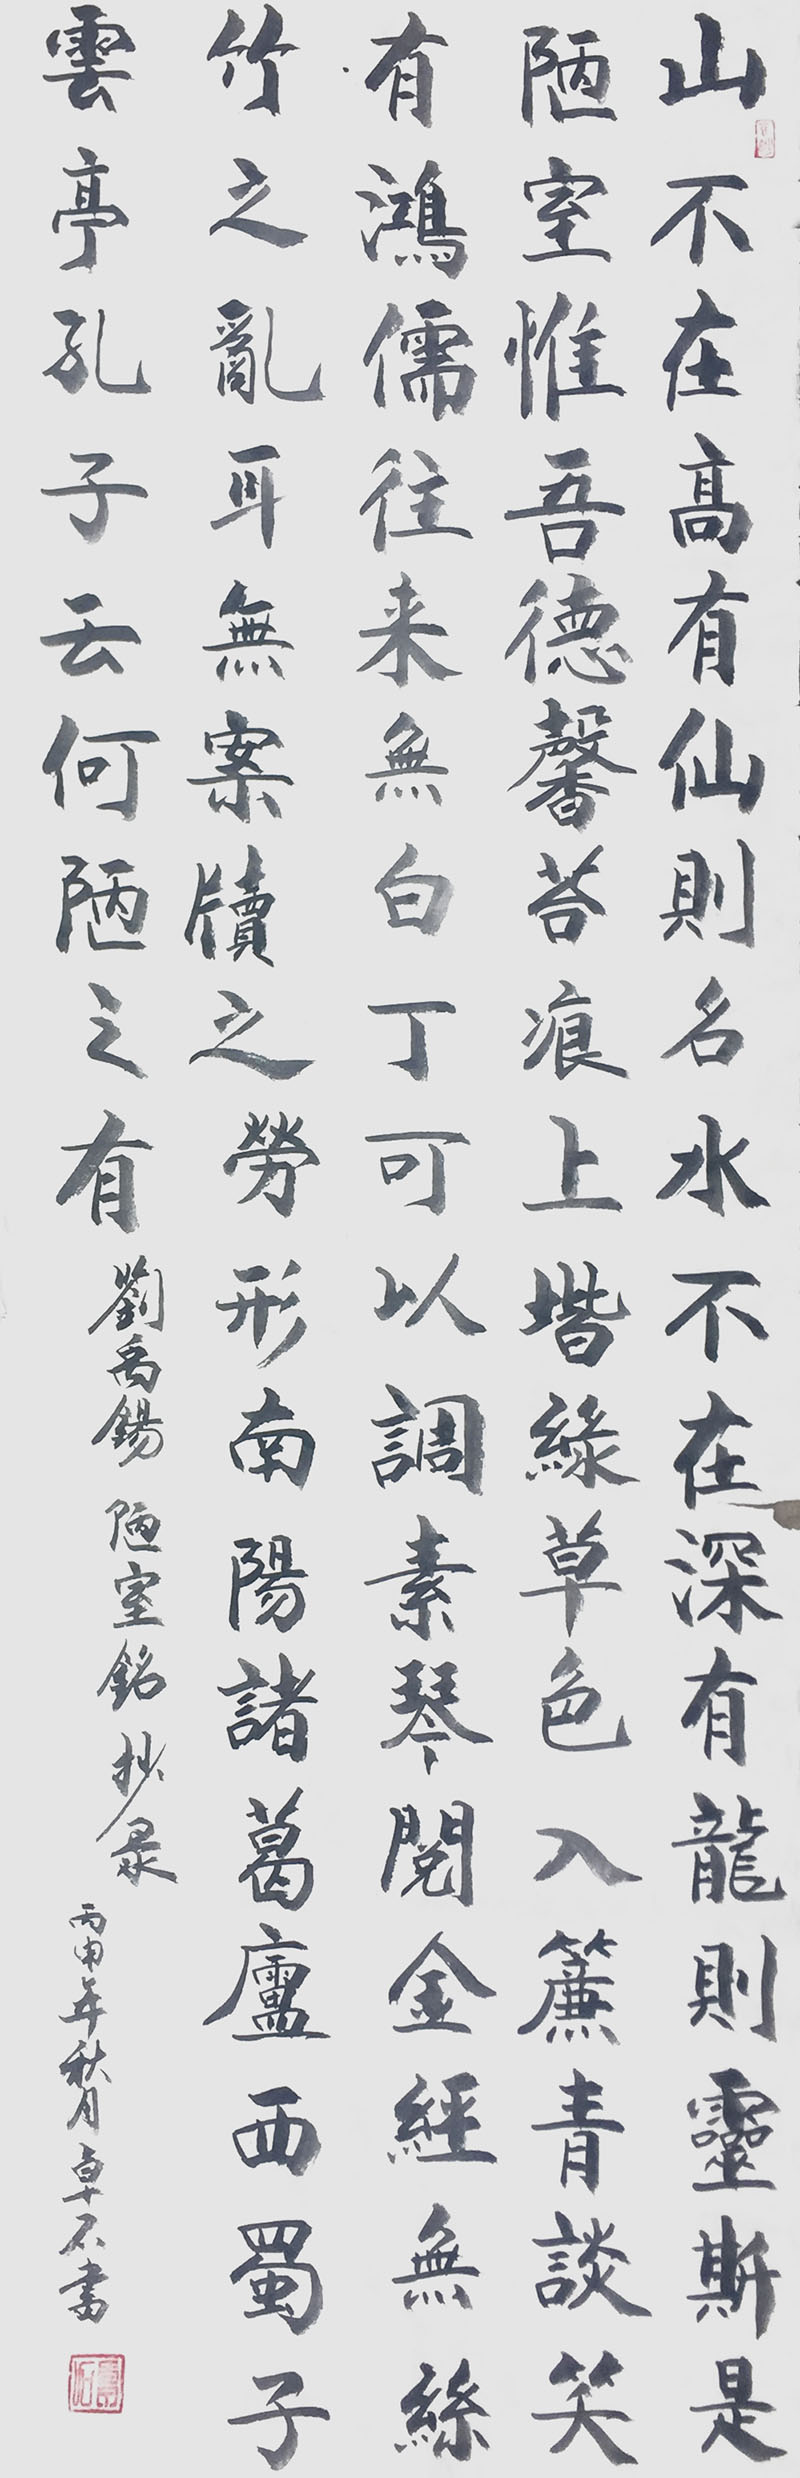 山不在高有仙則名水不在深有龍則靈斯是
陋室惟吾德馨苔痕上堦綠草色入簾青談笑
有鴻儒往来無白丁可以調素琴閱金經無絲
竹之亂耳無案牘之勞形南陽諸葛廬西蜀子
雲亭孔子云何陋之有
劉禹錫陋室銘抄录
丙申年秋月卓石書